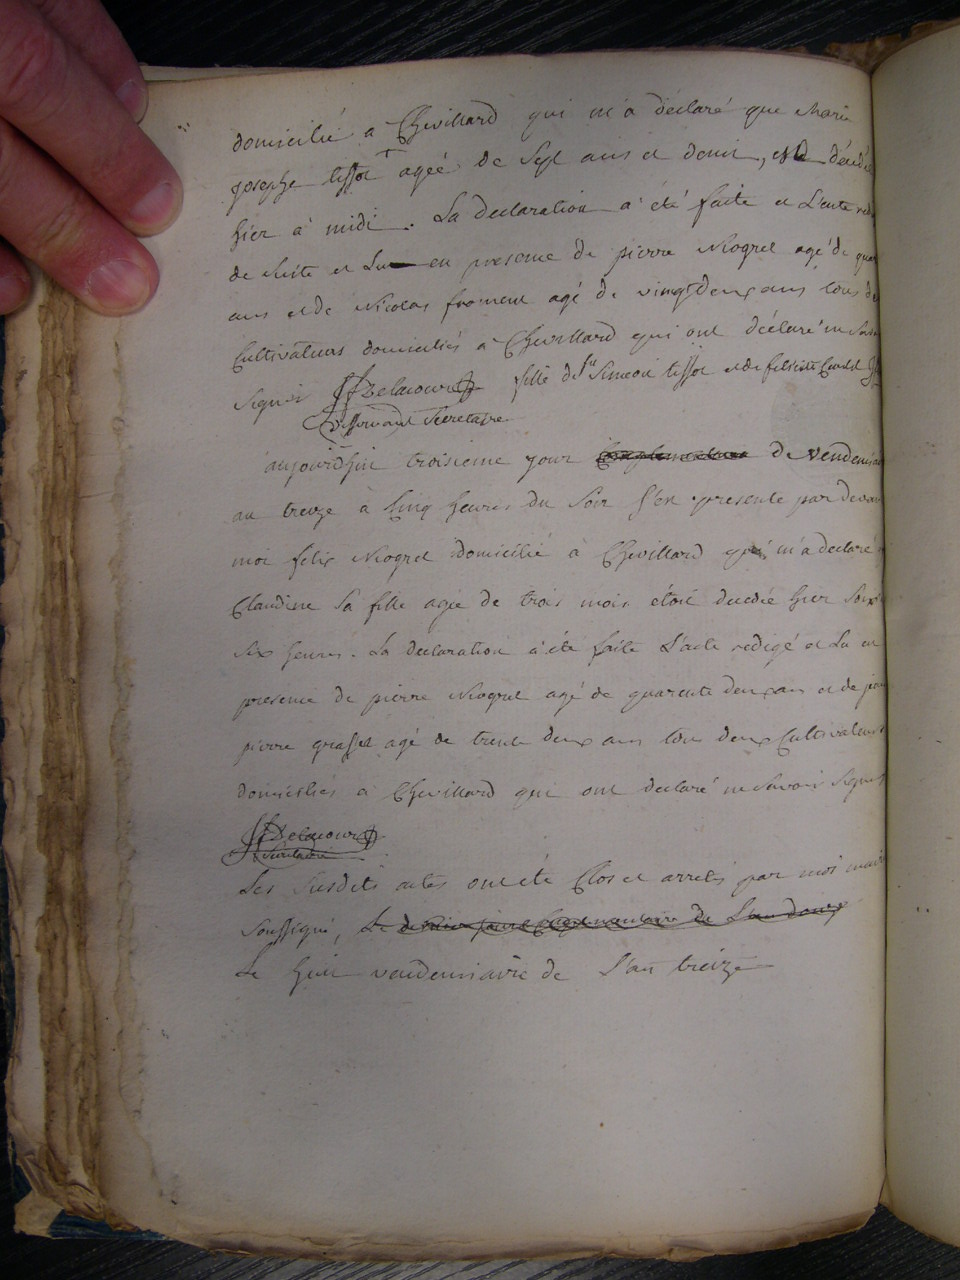 domicilié a Chevillard qui m'a déclaré que Marie
josephe tissot agéé de Sept ans et demi, est décédé
hier à midi. La declaration a été faite et L'acte
de Suite et Lu en presence de pierre Niogret agé de
ans et de Nicolas froment agé de vingt deux ans tous
Cultivateurs domiciliés a Chevillard qui ont déclaré ne
Signer JfDelacour fille de Simeon tissot et de felicité
Secretaire
aujourdhui troisieme jour Complementaire de vendemi
an treize à Cinq heures du Soir S'est presenté par devan
moi felix Niogret domicilié à Chevillard qui m'a declaré
Claudine Sa fille agée de trois mois étoit decedée hier Soir
Six heures. La declaration a été faite L'acte redigé et Lu en
presence de pierre Niogret agé de quarente deux ans et de
pierre grasset agé de trente deux ans tous deux Cultivateurs
domiciliés a Chevillard qui ont declaré ne Savoir Signer
JfDelacour
Secretaire
Les Susdits actes ont été Clos et arretés par moi maire
Soussigné, Le dernier jour Complementaire de L'an douze
Le huit vendemiaire de L'an treize